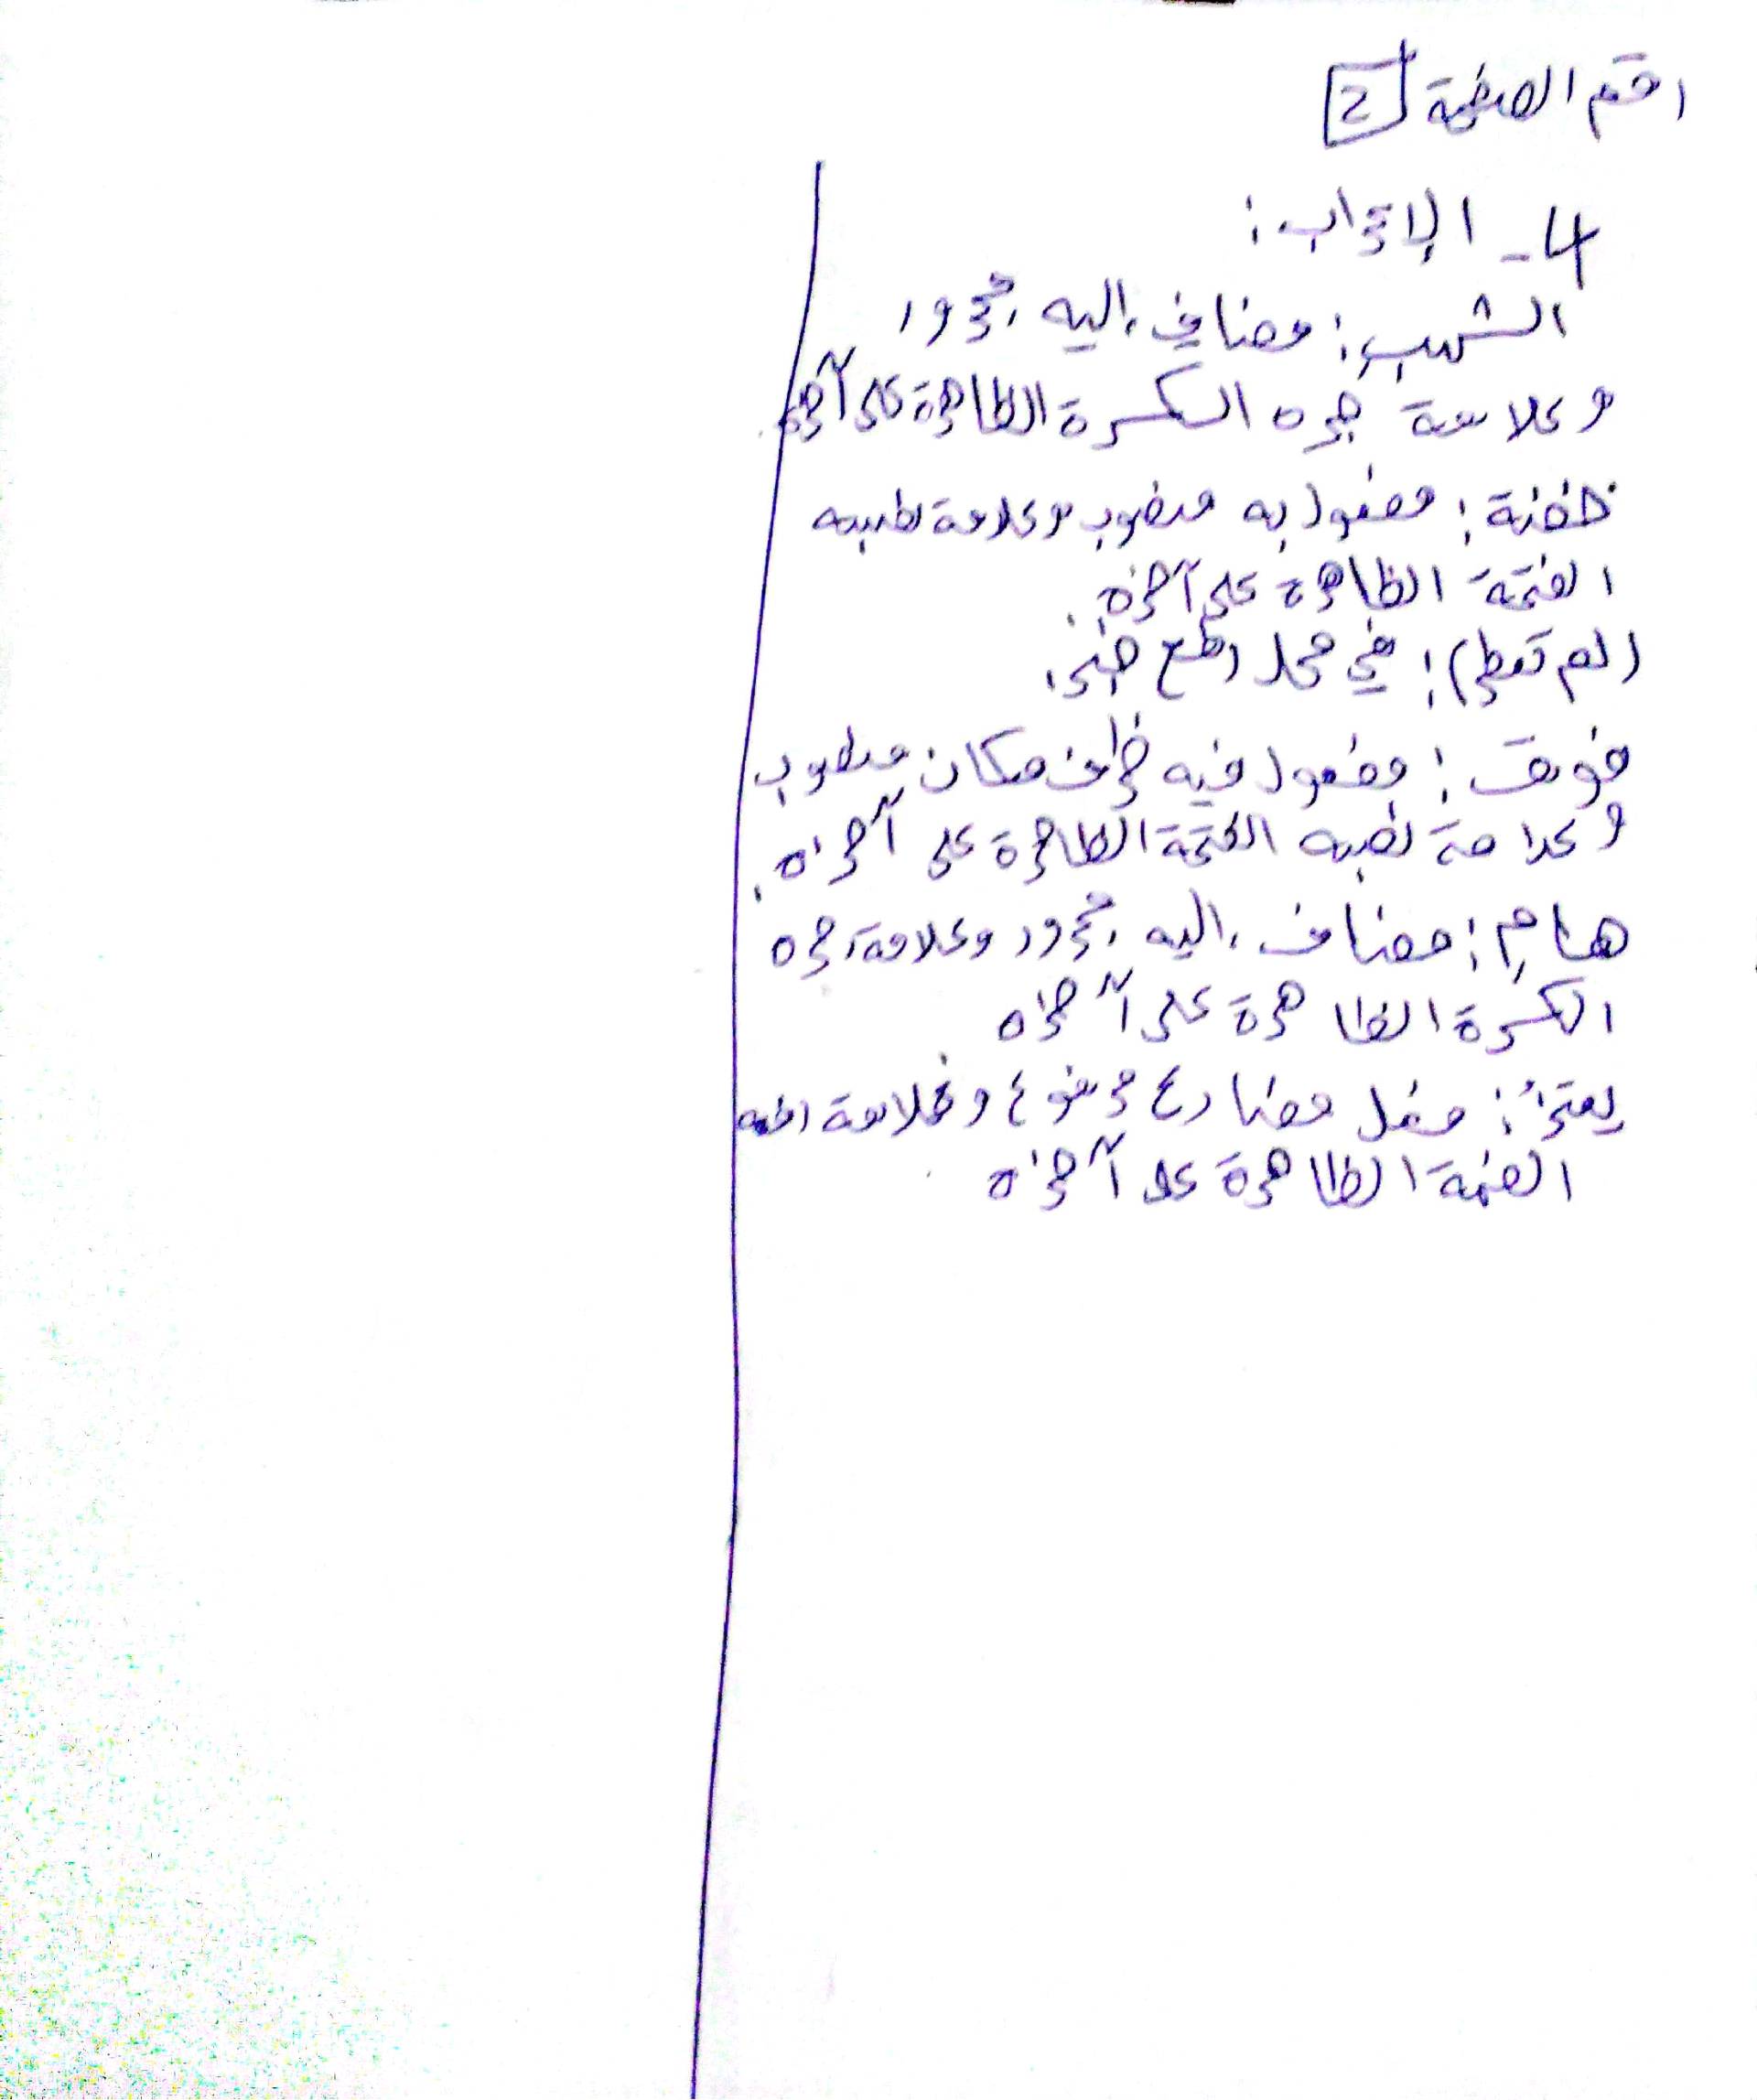 رقم الصفحة 2
4_ الإعراب:
الشهب: مضاف إليه مجرور
وعلامة جره الكسرة الظاهرة على آخره.
مفعول به منصوب وعلامة نصبه
الفتحة الظاهرة على آخره.
(لم تعط): في محل رفع خبر.
فويق: مفعول فيه ظرف مكان منصوب
وعلامة نصبه الفتحة الظاهرة على آخره.
هامِ: مضاف إليه مجرور وعلامة جره
الكسرة الظاهرة على آخره
فعل مضارع مرفوع وعلامة رفعه
الضمة الظاهرة على آخره